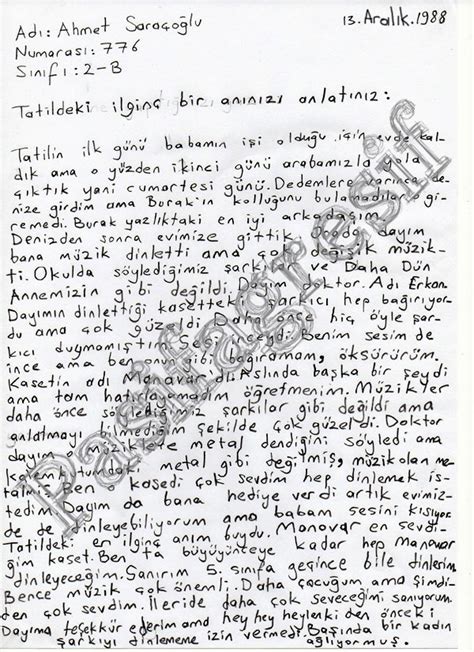 Adı: Ahmet Saraçoğlu
13.Aralık.1988
Numarası: 776
Sınıfı: 2-B
Tatildeki ilginç bir anınızı anlatınız:
Tatilin ilk günü babamın işi olduğu için evde kal-
dık ama o yüzden ikinci günü arabamızla yola
çıktık yani cumartesi günü. Dedemlere varınca de-
nize girdim ama Burak'ın kolluğunu bulamadılar o gi-
remedi. Burak yazlıktaki en iyi arkadaşım.
Denizden sonra evimize gittik. Orada dayım
bana müzik dinletti ama çok değişik müzik-
ti. Okulda söylediğimiz şarkı ve Daha Dün
Annemizin gibi değildi. Dayım doktor. Adı Erkan.
Dayımın dinlettiği kasetteki şarkıcı hep bağırıyor-
du ama çok güzeldi. Daha önce hiç öyle şar-
kıcı duymamıştım. Sesi inceydi. Benim sesim de
ince ama ben onun gibi bağıramam, öksürürüm.
Kasetin adı Manovar'dı. Aslında başka bir şeydi
ama tam hatırlayamadım öğretmenim. Müzikler
daha önce söylediğimiz şarkılar gibi değildi ama
anlatmayı bilmediğim şekilde çok güzeldi. Doktor
dayım müziklere metal dendiğini söyledi ama
kalemkutumdaki metal gibi değilmiş, müzik olan me-
talmiş. Ben kasedi çok sevdim hep dinlemek is-
tedim. Dayım da bana hediye verdi artık evimiz-
de de dinleyebiliyorum ama babam sesini kısıyor.
Tatildeki en ilginç anım buydu. Manovar en sevdi-
ğim kaset. Ben ta büyüyünceye kadar hep Manovar
dinleyeceğim. Sanırım 5. sınıfa geçince bile dinlerim.
Bence müzik çok önemli. Daha çocuğum ama şimdi-
den çok sevdim. İleride daha çok seveceğimi sanıyorum.
Dayıma teşekkür ederim ama hey hey heylenki den önceki
şarkıyı dinlememe izin vermedi. Başında bir kadın
ağlıyormuş.
Pasifagresif